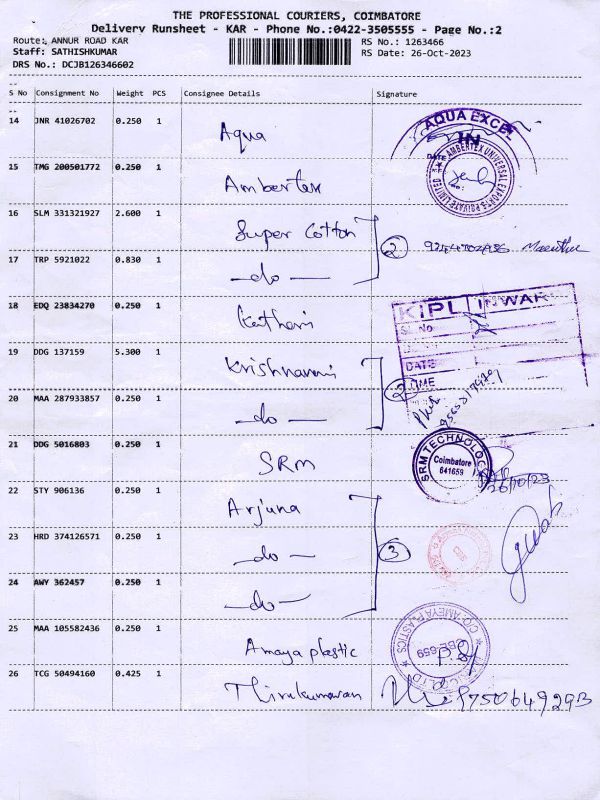 THE PROFESSIONAL COURIERS, COIMBATORE
Delivery Runsheet - KAR - Phone No.:0422-3505555 - Page No.:2
Route: ANNUR ROAD KAR
RS No.: 1263466
Staff: SATHISHKUMAR
RS Date: 26-Oct-2023
DRS No.: DCJB126346602
S No Consignment No Weight PCS Consignee Details Signature
14 JNR 41026702 0.250 1 Aqua
AQUA EXCEL
IN
DATE
15 TMG 200501772 0.250 1 Ambertex
AMBERTEX UNIVERSAL EXPORTS PRIVATE LIMITED
16 SLM 331321927 2.600 1 Super Cotton
2
17 TRP 5921022 0.830 1 —do—
18 EDQ 23834270 0.250 1 Kathari
KIPL INWAR
Sl. No
DATE
TIME
19 DDG 137159 5.300 1 Krishnaveni
2
20 MAA 287933857 0.250 1 —do—
21 DDG 5016803 0.250 1 SRM
SRM TECHNOLOG
Coimbatore
641659
26/10/23
22 STY 906136 0.250 1 Arjuna
23 HRD 374126571 0.250 1 —do—
3
24 AWY 362457 0.250 1 —do—
25 MAA 105582436 0.250 1 Amaya plastic
C/O. AMEYA PLASTICS
CBE-659
26 TCG 50494160 0.425 1 Thirukumaran
9750649293